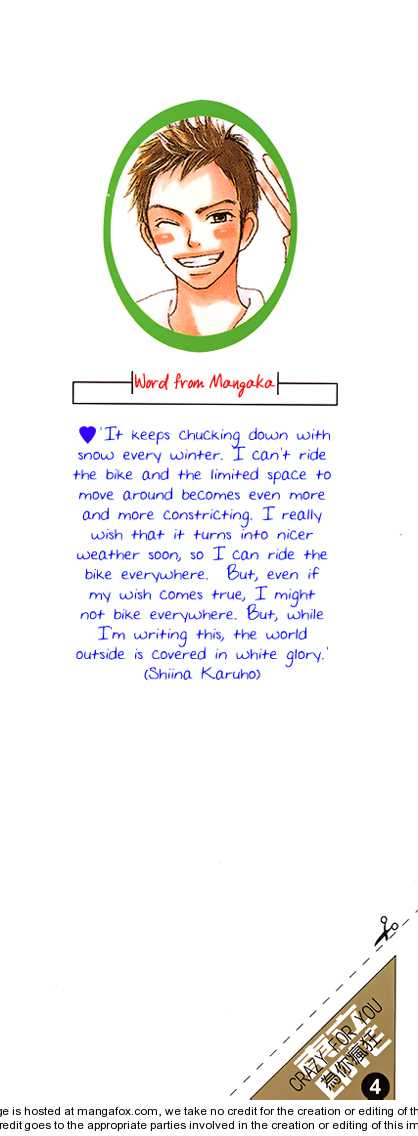 Word from Mangaka
♥'It keeps chucking down with
snow every winter. I can't ride
the bike and the limited space to
move around becomes even more
and more constricting. I really
wish that it turns into nicer
weather soon, so I can ride the
bike everywhere. But, even if
my wish comes true, I might
not bike everywhere. But, while
I'm writing this, the world
outside is covered in white glory.'
(Shiina Karuho)
CRAZY FOR YOU
為你瘋狂
4
ge is hosted at mangafox.com, we take no credit for the creation or editing of th
redit goes to the appropriate parties involved in the creation or editing of this im